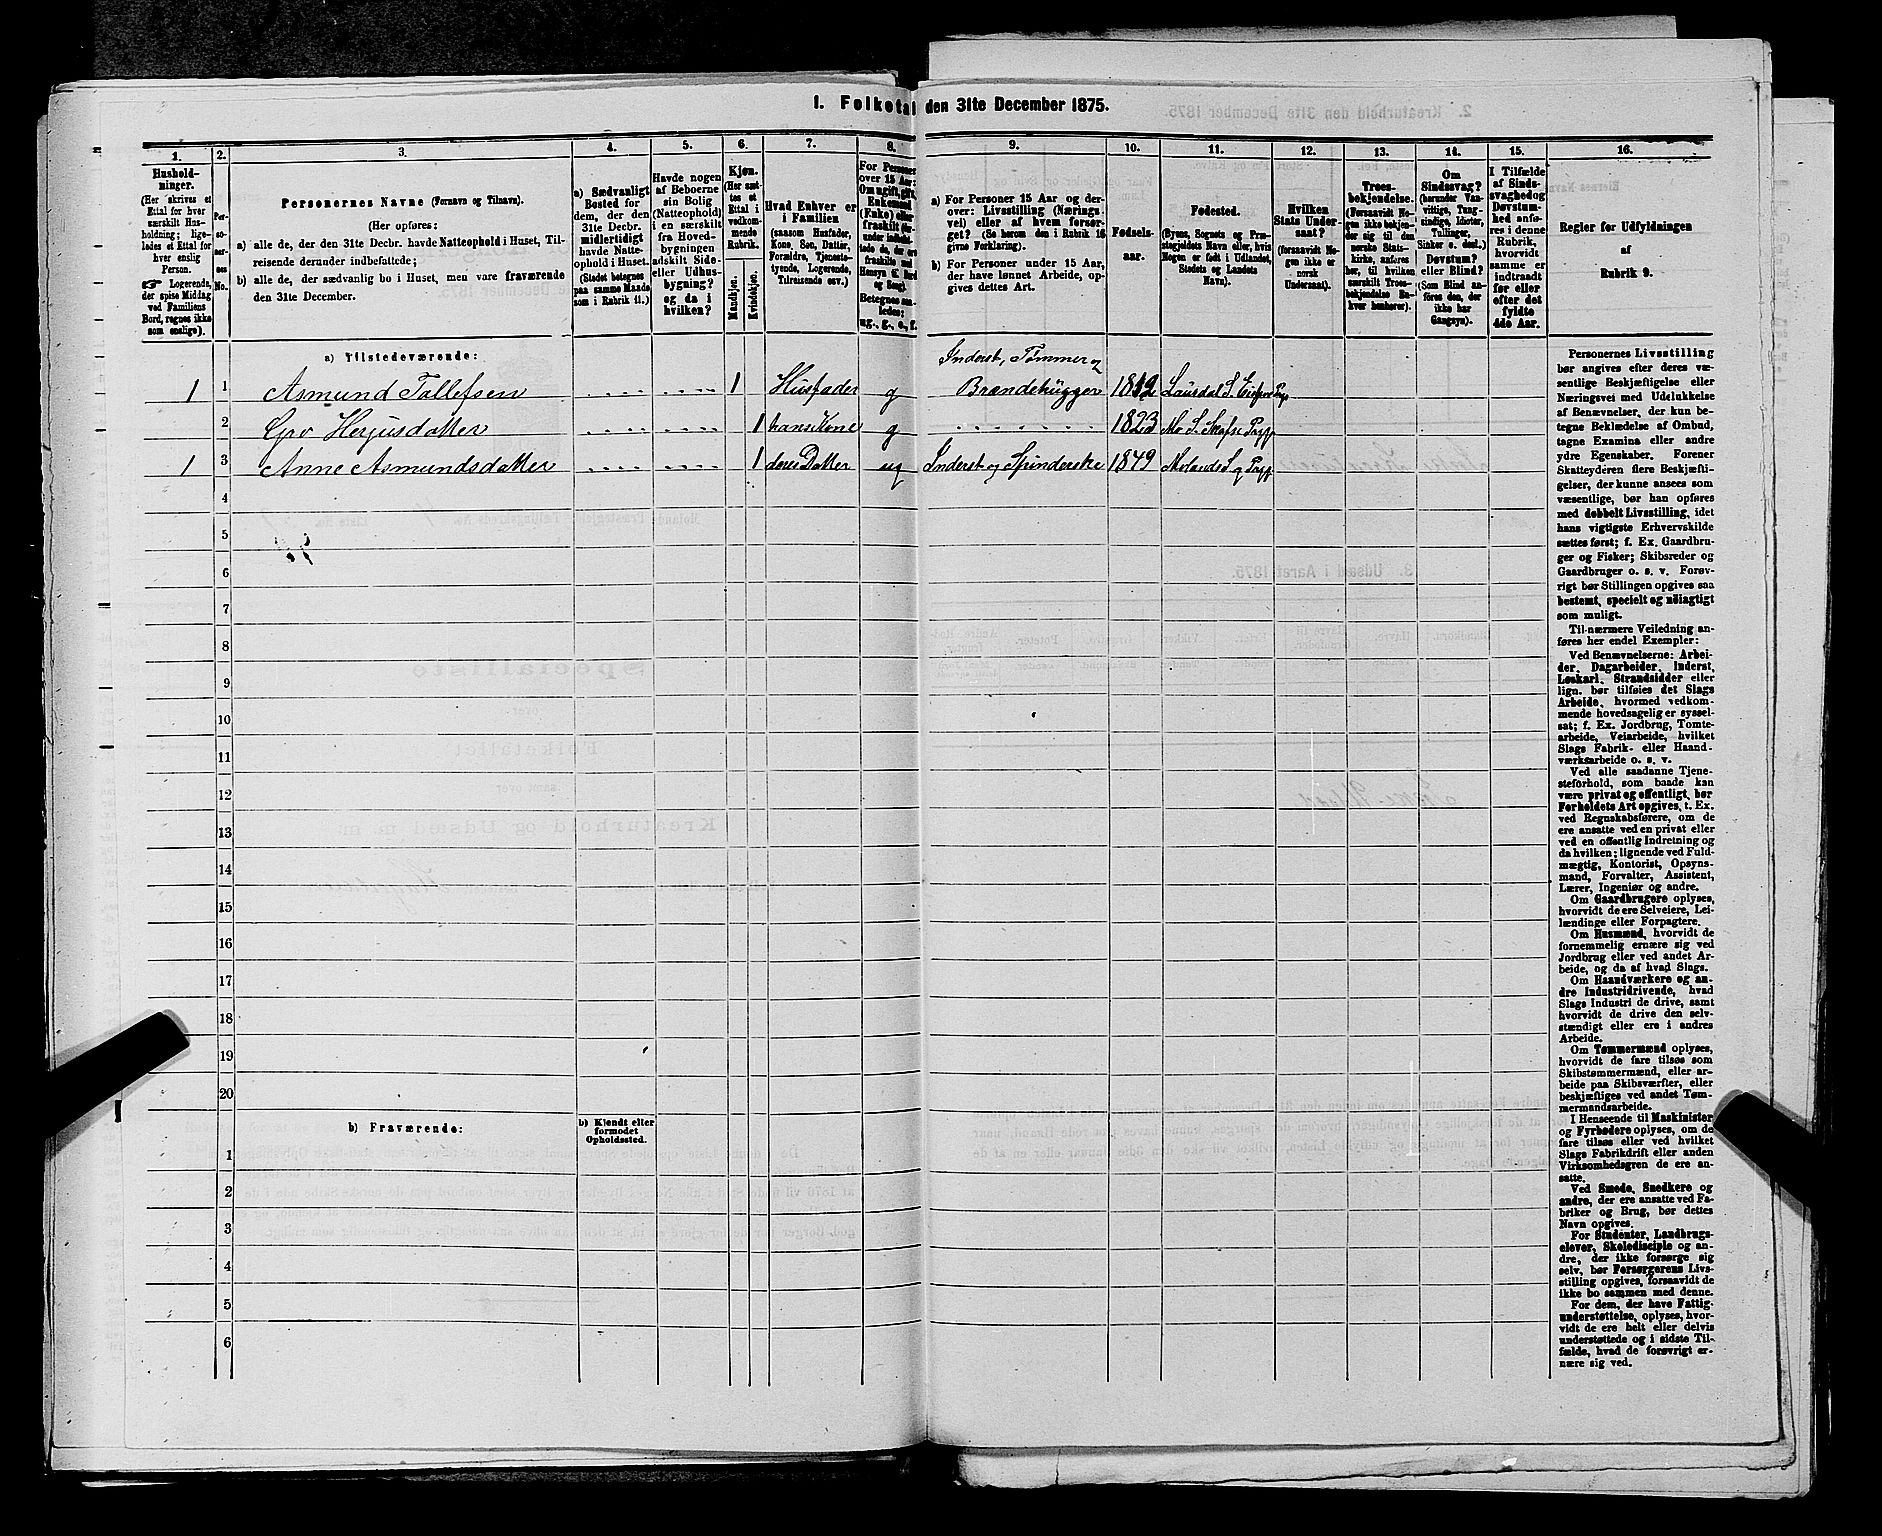 I. Folketal den 31te December 1875.
1. 2. 3. 4. 5. 6. 7. 8. 9. 10. 11. 12. 13. 14. 15. 16.
Hushold-
ninger.
(Her skrives et
Ettal for hver
særskilt Hus-
holdning; lige-
ledes et Ettal for
hver enslig
Person.
☞ Logerende,
der spise Middag
ved Familiens
Bord, regnes ikke
som enslige).
Per-
so-
ner-
nes
No.
Personernes Navne (Fornavn og Tilnavn).
(Her opføres:
a) alle de, der den 31te Decbr. havde Natteophold i Huset, Til-
reisende derunder indbefattede;
b) alle de, der sædvanlig bo i Huset, men vare fraværende
den 31te December.
a) Sædvanligt
Bosted for
dem, der den
31te Decbr.
midlertidigt
havde Natte-
ophold i Huset.
(Stedet betegnes
paa samme Maade
som i Rubrik 11.)
Havde nogen
af Beboerne
sin Bolig
(Natteophold)
i en særskilt
fra Hoved-
bygningen
adskilt Side-
eller Udhus-
bygning?
og da i
hvilken?
Kjøn.
(Her sæt-
tes et
Ettal i
vedkom-
mende
Rubrik.
Mandkjøn.
Kvindekjøn.
Hvad Enhver er
i Familien
(saasom Husfader,
Kone, Søn, Datter,
Forældre, Tjeneste-
tyende, Logerende,
Tilreisende osv.)
For Personer
over 15 Aar:
Om ugift, gift,
Enkemand
(Enke) eller
fraskilt
Betegnes saa-
ledes:
ug., g., e., f.
a) For Personer 15 Aar og der-
over: Livsstilling (Nærings-
vei) eller af hvem forsør-
get? (Se herom den i Rubrik 16
givne Forklaring).
b) For Personer under 15 Aar,
der have lønnet Arbeide, op-
gives dettes Art.
Fødsels-
aar.
Fødested.
(Byens, Sognets og Præ-
stegjeldets Navn eller, hvis
Nogen er født i Udlandet,
Stedets og Landets
Navn).
Hvilken
Stats Under-
saat?
(forsaavidt No-
gen ikke er
norsk
Undersaat).
Troes-
bekjendelse.
(Forsaavidt No-
gen ikke bekjen-
der sig til den
norske Stats-
kirke, anføres
her, til hvilken
særskilt Troes-
bekjendelse En-
hver henhører).
Om
Sindssvag?
(herunder Van-
vittige, Tung-
sindige, Idioter,
Tullinger,
Sinker o. desl.)
Døvstum?
eller Blind?
(Som Blind an-
føres den, der
ikke har
Gangsyn).
I Tilfælde
af Sinds-
svaghed og
Døvstum-
hed anfø-
res i denne
Rubrik,
hvorvidt
samme er
indtraadt
før eller
efter det
fyldte
4de Aar.
Regler for Udfyldningen
af
Rubrik 9.
a) Tilstedeværende:
Inderst, Tømmer og
1 1 Asmund Tollefsen 1 Husfader g Brændehugger Laurdal S.
2 Gro Hergusdatter 1 hans Kone g 1823 Mo S. Skafse Pgjl
1 3 Anne Asmundsdatter 1 deres Datter ug Inderst og Spinderske 1849 Molands S og Pgjl
4
5
6
7
8
9
10
11
12
13
14
15
16
17
18
19
20
b) Fraværende:
b) Kjendt eller
formodet
Opholdssted.
1
2
3
4
5
6
Personernes Livsstilling
bør angives efter deres væ-
sentlige Beskjæftigelse eller
Næringsvei med Udelukkelse
af Benævnelser, der kun be-
tegne Beklædelse af Ombud,
tagne Examina eller andre
ydre Egenskaber. Forener
Skatteyderen flere Beskjæfti-
gelser, der kunne ansees som
væsentlige, bør han opføres
med dobbelt Livsstilling, idet
hans vigtigste Erhvervskilde
sættes først; f. Ex. Gaardbru-
ger og Fisker; Skibsreder og
Gaardbruger o. s. v. Forøv-
rigt bør Stillingen opgives saa
bestemt, specielt og nøiagtigt
som muligt.
Til nærmere Veiledning an-
føres her endel Exempler:
Ved Benævnelserne: Arbei-
der, Dagarbeider, Inderst,
Løskarl, Strandsidder eller
lign. bør tilføies det Slags
Arbeide, hvormed vedkom-
mende hovedsagelig er syssel-
sat; f. Ex. Jordbrug, Tomte-
arbeide, Veiarbeide, hvilket
Slags Fabrik- eller Haand-
værksarbeide o. s. v.
Ved alle saadanne Tjene-
steforhold, som baade kan
være privat og offentligt, bør
Forholdets Art opgives, t. Ex.
ved Regnskabsførere, om de
ere ansatte ved en privat eller
ved en offentlig Indretning og
da hvilken; lignende ved Fuld-
mægtig, Kontorist, Opsyns-
mand, Forvalter, Assistent,
Lærer, Ingeniør og andre.
Om Gaardbrugere oplyses,
hvorvidt de ere Selveiere, Lei-
lændinge eller Forpagtere.
Om Husmænd, hvorvidt de
fornemmelig ernære sig ved
Jordbrug eller ved andet Ar-
beide, og da af hvad Slags.
Om Haandværkere og an-
dre Industridrivende, hvad
Slags Industri de drive, samt
hvorvidt de drive den selv-
stændigt eller ere i andres
Arbeide.
Om Tømmermænd oplyses,
hvorvidt de fare tilsøs som
Skibstømmermænd, eller ar-
beide paa Skibsværfter, eller
beskjæftiges ved andet Tøm-
mermandsarbeide.
I Henseende til Maskinister
og Fyrbødere oplyses, om de
fare tilsøs eller ved hvilket
Slags Fabrikdrift eller anden
Virksomhedsgren de ere an-
satte.
Ved Smede, Snedkere og
andre, der ere ansatte ved Fa-
briker og Brug, bør dettes
Navn opgives.
For Studenter, Landbrugs-
elever, Skoledisciple og an-
dre, der ikke forsørge sig
selv, bør Forsørgerens Livs-
stilling opgives, forsaavidt de
ikke bo sammen med denne.
For dem, der have Fattig-
understøttelse, oplyses, hvor-
vidt de ere helt eller delvis
understøttede og i sidste Til-
fælde, hvad de forøvrigt er-
nære sig ved.